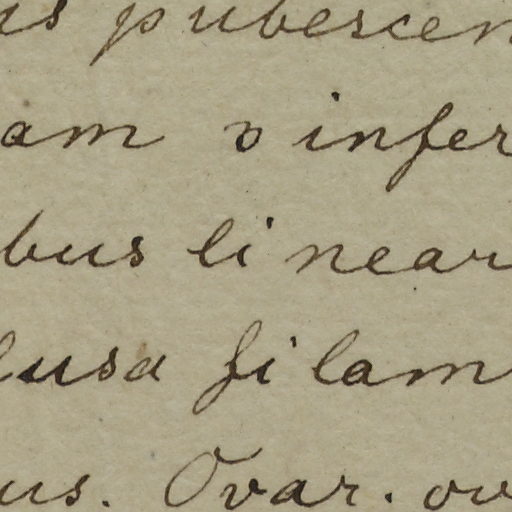 us pubescen
am v infer
bus linear
lusa filam
us. Ovar. ov